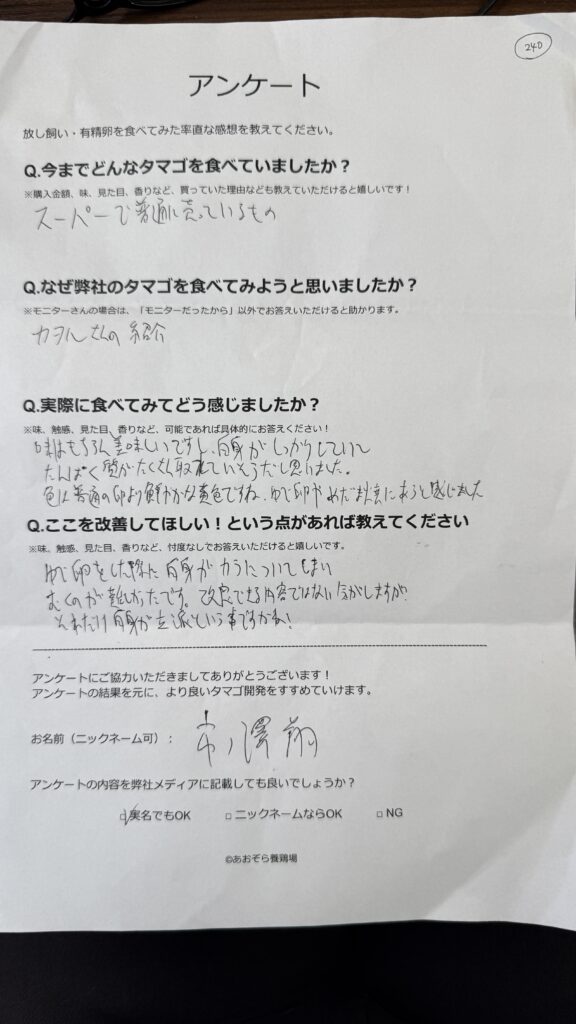 240
アンケート
放し飼い・有精卵を食べてみた率直な感想を教えてください。
Q.今までどんなタマゴを食べていましたか？
※購入金額、味、見た目、香りなど、買っていた理由なども教えていただけると嬉しいです！
スーパーで普通に売っているもの
Q.なぜ弊社のタマゴを食べてみようと思いましたか？
※モニターさんの場合は、「モニターだったから」以外でお答えいただけると助かります。
カヲルさんの紹介
Q.実際に食べてみてどう感じましたか？
※味、触感、見た目、香りなど、可能であれば具体的にお答えください！
味はもちろん美味しいですし、白身がしっかりしていて
たんぱく質がたくさん取れていそうだと思いました。
色は普通の卵より鮮やかな黄色ですね。ゆで卵やめだま焼にあうと感じました
Q.ここを改善してほしい！という点があれば教えてください
※味、触感、見た目、香りなど、忖度なしでお答えいただけると嬉しいです。
ゆで卵をした際に白身がカラについてしまい
むくのが難しかったです。改良できる内容ではない気がしますが?
それだけ白身が立派という事ですかね!
アンケートにご協力いただきましてありがとうございます！
アンケートの結果を元に、より良いタマゴ開発をすすめていけます。
お名前（ニックネーム可）： 澤 翔
アンケートの内容を弊社メディアに記載しても良いでしょうか？
☑実名でもOK □ニックネームならOK □NG
©あおぞら養鶏場